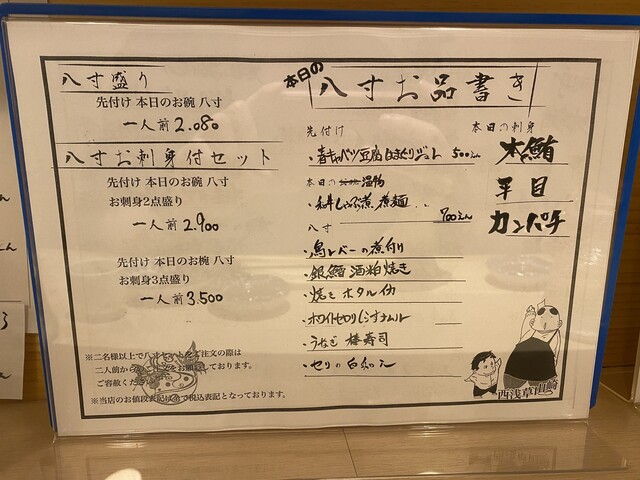 八寸盛り
先付け 本日のお碗 八寸
一人前2.080
八寸お刺身付セット
先付け 本日のお碗 八寸
お刺身2点盛り
一人前2.900
先付け 本日のお碗 八寸
お刺身3点盛り
一人前3.500
※二名様以上で八寸セットをご注文の際は
二人前から お願いしております。
ご容赦くだ
※当店のお値段表記は全て税込表記となっております。
本日の
八寸お品書き
先付け
・青キャベツ豆腐 はまぐりジュレ 500えん
本日の 温物
しゃぶ煮 煮麺 900えん
八寸
・鳥レバーの煮付け
・銀鱈酒粕焼き
・焼きホタルイカ
・ホワイトセロリしらすナムル
・うなぎ棒寿司
・セリの白和え
本日の刺身
本鮪
平目
カンパチ
西浅草山崎